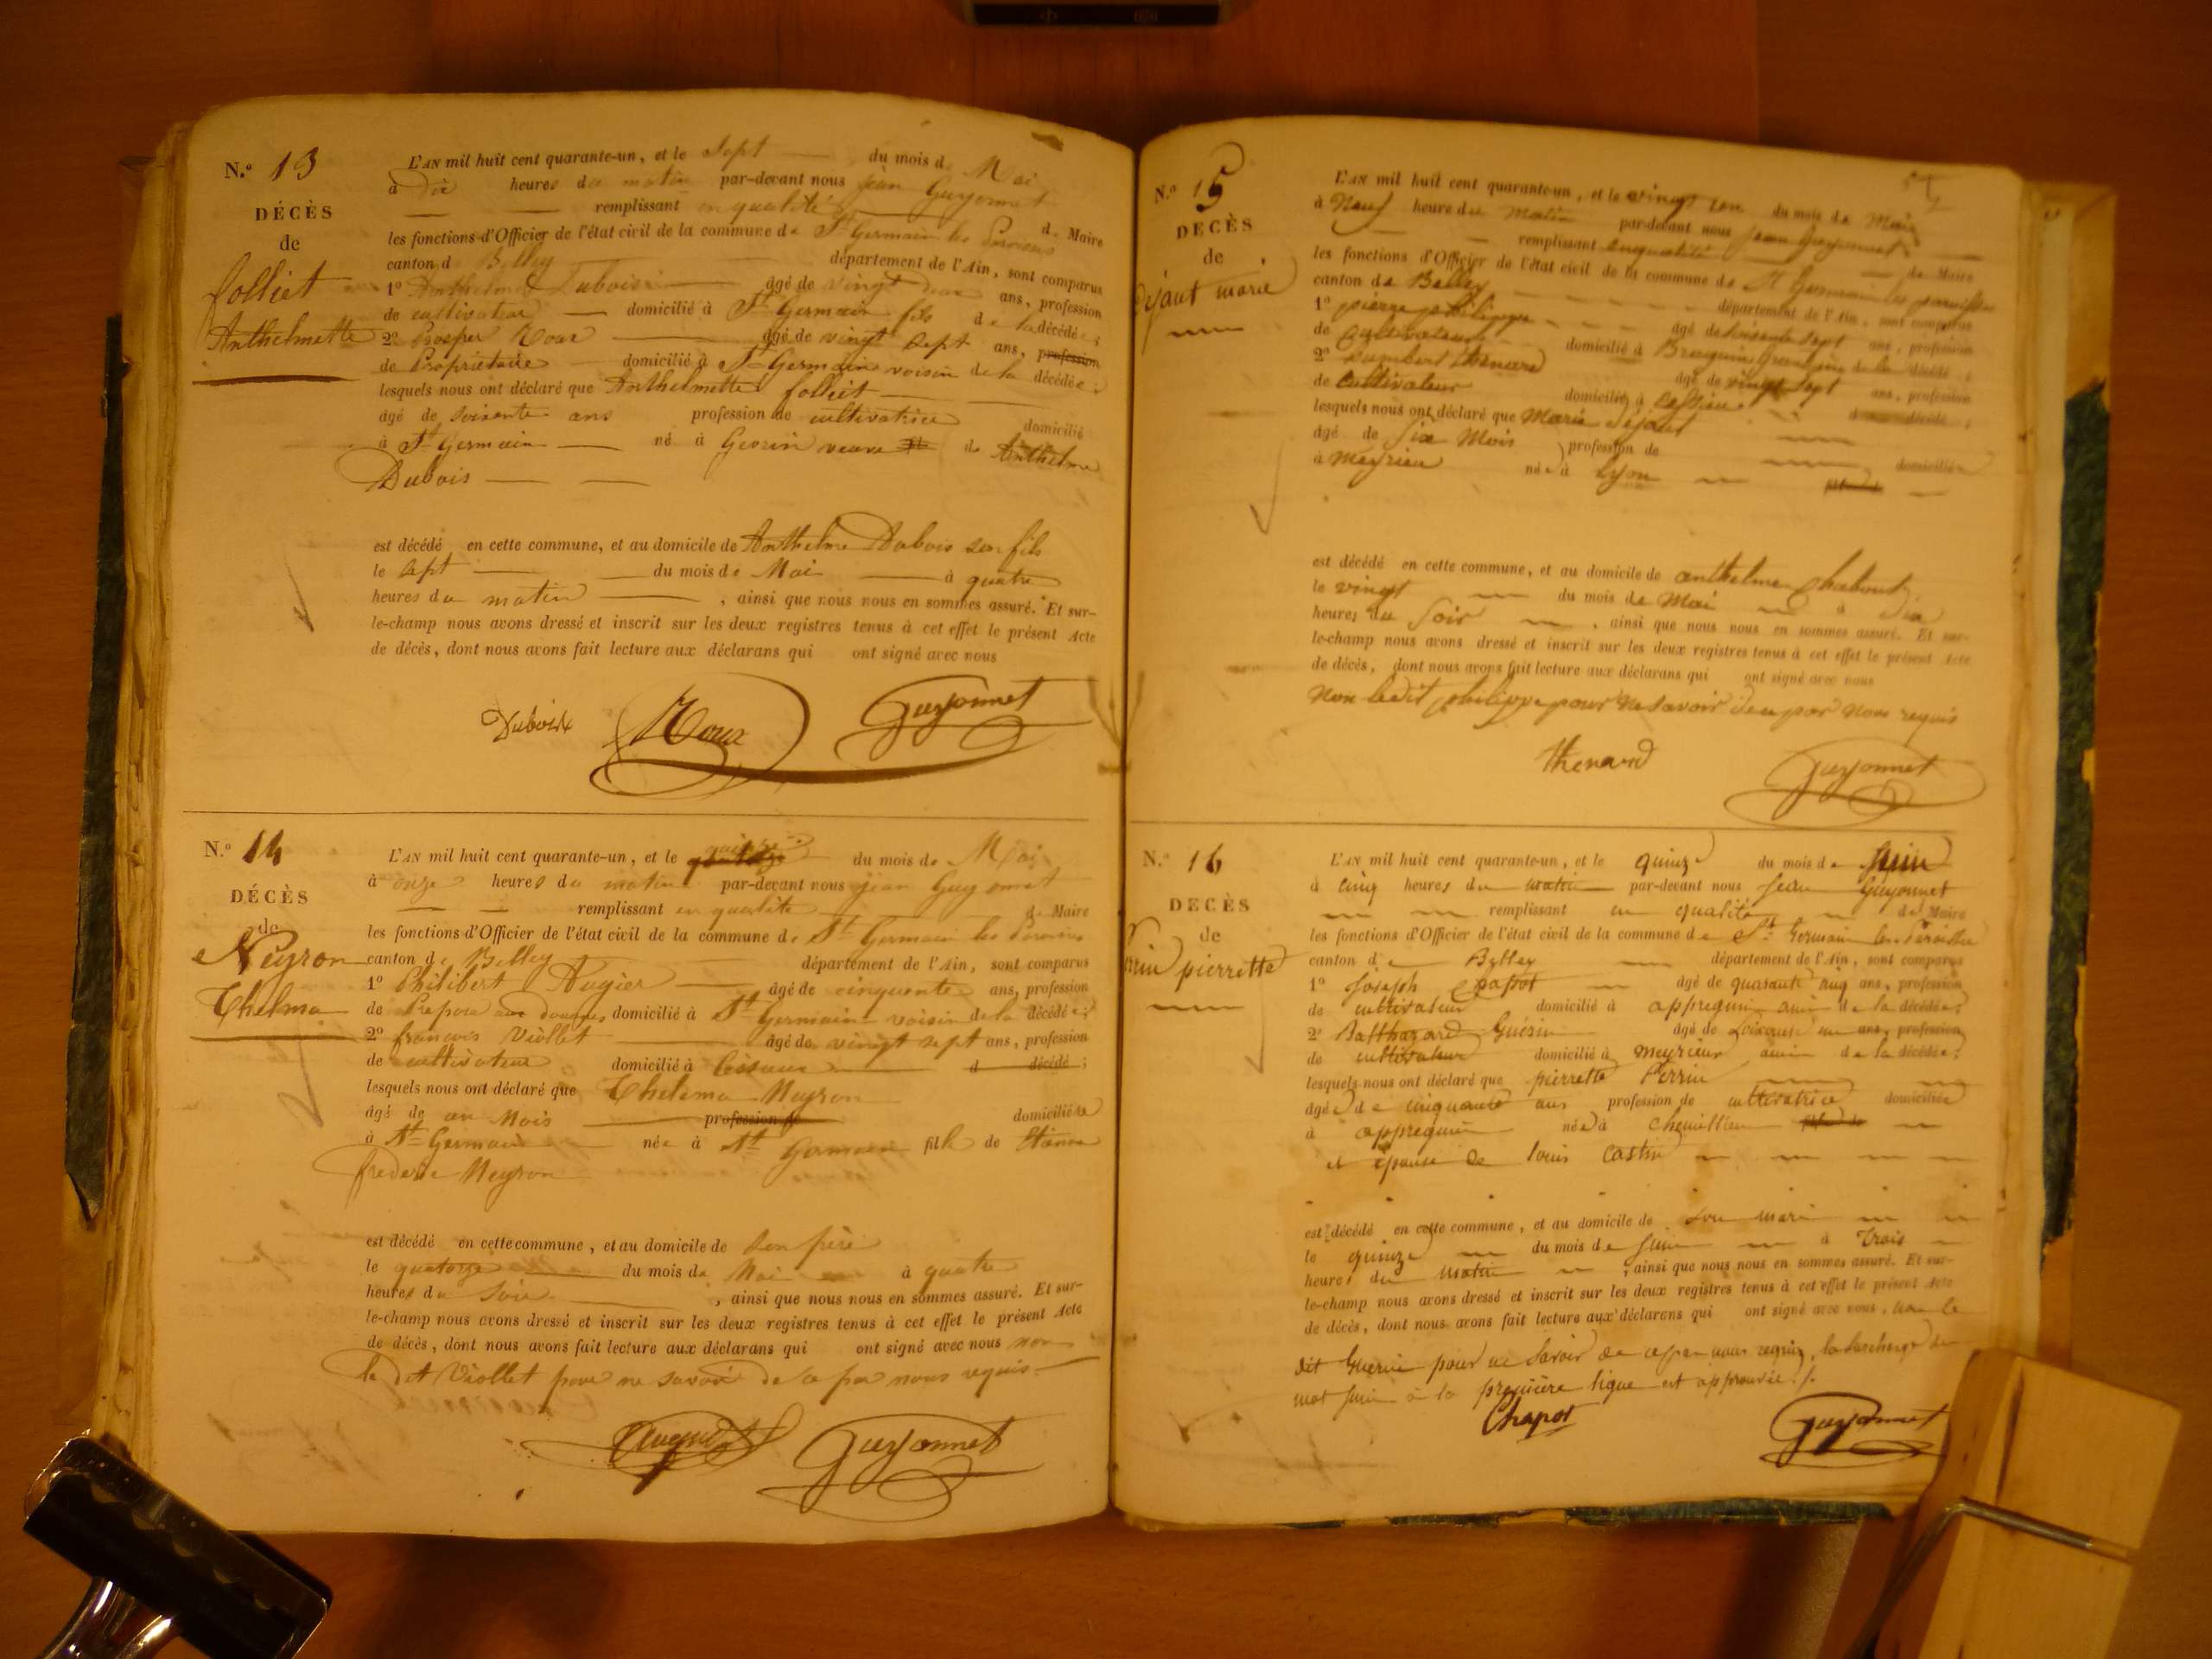 N.º 13
DÉCÈS
de
folliet
Anthelmette
L'AN mil huit cent quarante-un, et le Sept du mois de Mai
à Dix heures du matin par-devant nous jean Guyonnet
remplissant en qualité de Maire
les fonctions d'Officier de l'état civil de la commune de St Germain les Paroisses
canton de Belley département de l'Ain, sont comparus
1º Anthelme Dubois âgé de vingt ans, profession
de cultivateur domicilié à St Germain fils de la décédée;
2º Prosper Roux âgé de vingt sept ans, profession
de Propriétaire domicilié à St Germain voisin de la décédée;
lesquels nous ont déclaré que Anthelmette folliet
âgé de soixante ans profession de cultivatrice domicilié
à St Germain né à Gevrin veuve de Anthelme
Dubois
est décédé en cette commune, et au domicile de Anthelme Dubois son fils
le sept du mois de Mai à quatre
heures du matin, ainsi que nous nous en sommes assuré. Et sur-
le-champ nous avons dressé et inscrit sur les deux registres tenus à cet effet le présent Acte
de décès, dont nous avons fait lecture aux déclarans qui ont signé avec nous
Dubois Roux Guyonnet
N.º 14
DÉCÈS
de
Neyron
Thelma
L'AN mil huit cent quarante-un, et le quinze du mois de Mai
à onze heures du matin par-devant nous jean Guyonnet
remplissant en qualité de Maire
les fonctions d'Officier de l'état civil de la commune de St Germain les Paroisses
canton de Belley département de l'Ain, sont comparus
1º Philibert Augier âgé de cinquante ans, profession
de Préposé aux douanes domicilié à St Germain voisin de la décédée;
2º francois Viollet âgé de vingt sept ans, profession
de cultivateur domicilié à d décédé;
lesquels nous ont déclaré que Thelema Neyron
âgé de un Mois profession de domiciliée
à St Germain née à St Germain fille de Etienne
frederic Neyron
est décédé en cette commune, et au domicile de son père
le quatorze du mois de Mai à quatre
heures du Soir, ainsi que nous nous en sommes assuré. Et sur-
le-champ nous avons dressé et inscrit sur les deux registres tenus à cet effet le présent Acte
de décès, dont nous avons fait lecture aux déclarans qui ont signé avec nous non
le dit Viollet pour ne savoir de ce par nous requis
Augier Guyonnet
N.º 15
DÉCÈS
de
dejaut marie
L'AN mil huit cent quarante-un, et le vingt un du mois de Mai
à Neuf heure du matin par-devant nous Jean Guyonnet
remplissant en qualité de Maire
les fonctions d'Officier de l'état civil de la commune de St Germain les paroisses
canton de Belley département de l'Ain, sont comparus
1º pierre philippe âgé de soixante sept ans, profession
de cultivateur domicilié à de la décédé;
2º humbert thenard âgé de vingt sept ans, profession
de cultivateur domicilié à d décédé;
lesquels nous ont déclaré que Marie dejaut
âgé de Six Mois profession de domiciliée
à meyrieu née à Lyon
est décédé en cette commune, et au domicile de anthelme Chaboud
le vingt du mois de Mai à dix
heures du Soir, ainsi que nous nous en sommes assuré. Et sur-
le-champ nous avons dressé et inscrit sur les deux registres tenus à cet effet le présent Acte
de décès, dont nous avons fait lecture aux déclarans qui ont signé avec nous
non ledit philippe pour ne savoir de ce par nous requis
thenard Guyonnet
N.º 16
DÉCÈS
de
pierrette
L'AN mil huit cent quarante-un, et le quinze du mois de Juin
à cinq heures du matin par-devant nous Jean Guyonnet
remplissant en qualité de Maire
les fonctions d'Officier de l'état civil de la commune de St Germain les Paroisses
canton de Belley département de l'Ain, sont comparus
1º Joseph Chapot âgé de quarante cinq ans, profession
de cultivateur domicilié à appregnin ami de la décédée;
2º Balthazard Guérin âgé de soixante un ans, profession
de cultivateur domicilié à meyrieu ami de la décédée;
lesquels nous ont déclaré que pierrette Perrin
âgée de cinquante ans profession de cultivatrice domiciliée
à appregnin née à Chemillieu
et épouse de louis Castin
est décédé en cette commune, et au domicile de son mari
le quinze du mois de Juin à trois
heures du matin, ainsi que nous nous en sommes assuré. Et sur-
le-champ nous avons dressé et inscrit sur les deux registres tenus à cet effet le présent Acte
de décès, dont nous avons fait lecture aux déclarans qui ont signé avec nous, non le
dit Guerin pour ne savoir de ce par nous requis, la surcharge du
mot juin à la première ligne est approuvée.
Chapot Guyonnet